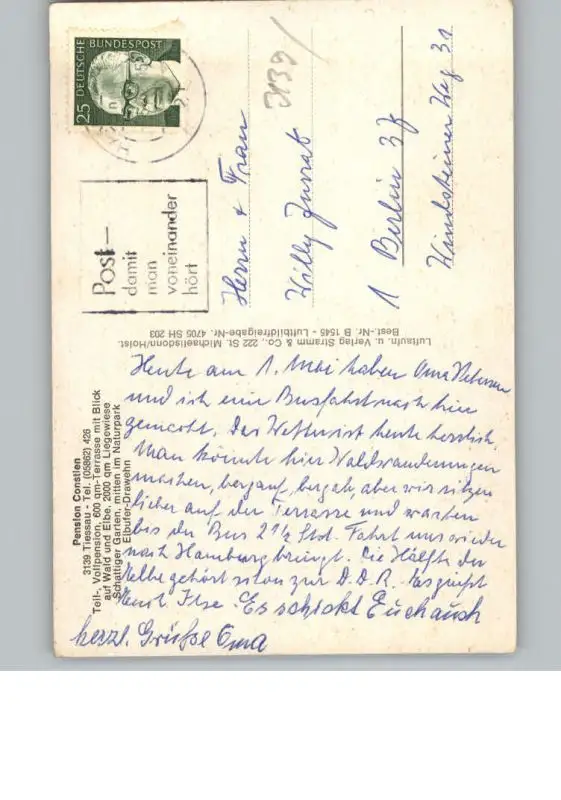 Pension Constien
3139 Tiessau · Tel. (05862) 426
Teil-, Vollpension, 600 qm-Terrasse mit Blick
auf Wald und Elbe, 2000 qm Liegewiese
Schattiger Garten, mitten im Naturpark
Elbufer-Drawehn
Heute am 1. Mai haben Oma Petersen
und ich eine Busfahrt nach hier
gemacht. Das Wetter ist heute herrlich.
Man könnte hier Waldwanderungen
machen, bergauf, bergab, aber wir sitzen
lieber auf der Terrasse und warten
bis der Bus 2 1/2 Std. Fahrt uns wieder
nach Hamburg bringt. Die Hälfte der
Elbe gehört schon zur D.D.R. Es grüßt
Ilse. Es schickt Euch auch
herzl. Grüße Oma
Luftaufn. u. Verlag Stramm & Co., 222 St. Michaelisdonn/Holst.
Best.-Nr. B 1545 - Luftbildfreigabe-Nr. 4705 SH 203
DEUTSCHE BUNDESPOST
25
Post–
damit
man
voneinander
hört
3139
Herrn & Frau
Willy
1 Berlin 37
Weg 31